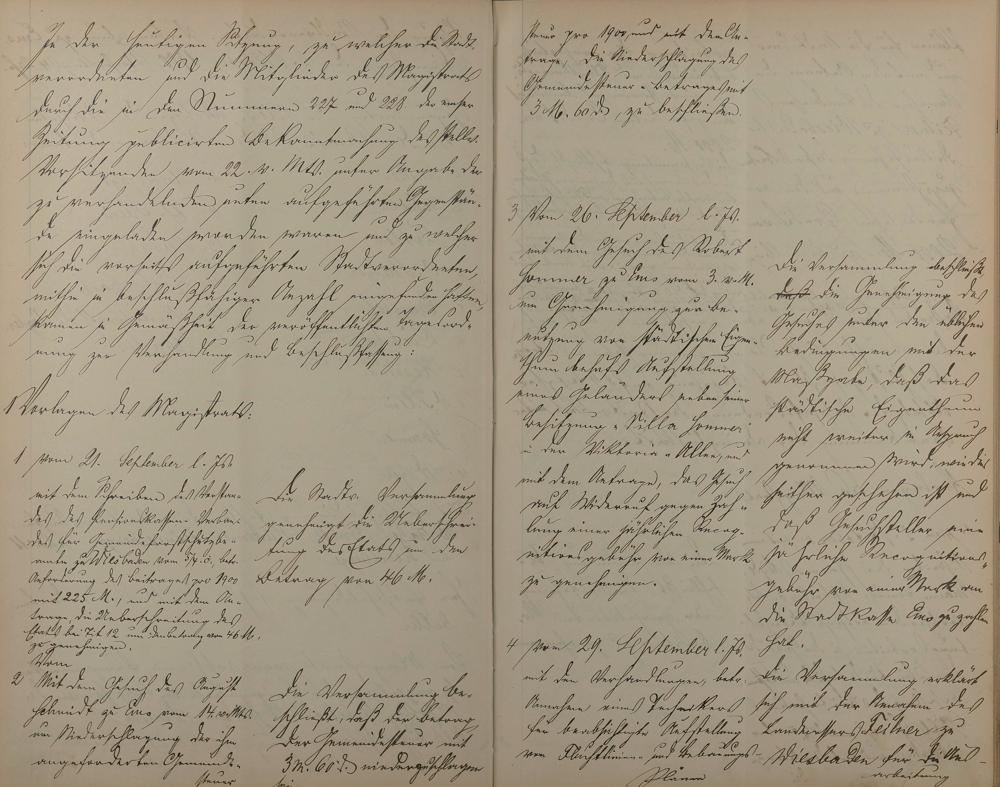 In der heutigen Sitzung, zu welcher die Stadt-
verordneten und die Mitglieder des Magistrats
durch die in den Nummern 227 und 228 der Emser
Zeitung publicirten Bekanntmachung des stellv.
Vorsitzenden vom 22. v. Mts. unter Angabe der
zu verhandelnden unten aufgeführten Gegenstän-
de eingeladen worden waren und zu welcher
sich die vorseits aufgeführten Stadtverordneten,
mithin in beschlußfähiger Anzahl eingefunden hatten,
kamen in Gemäßheit der veröffentlichten Tagesord-
nung zur Verhandlung und Beschlußfassung:
I Vorlagen des Magistrats:
1 vom 21. September l. Js.
mit dem Schreiben des Vorstan-
des des Pensionskassen-Verban-
des für Gemeindeforstschutzbe-
amte zu Wiesbaden vom 17. d. betr.
Anforderung des Beitrages pro 1900
mit 225 M., und mit dem An-
trage, die Ueberschreitung des
Etats bei Tit. 12 um den Betrag von 46 M.
zu genehmigen.
Die Stadtv. Versammlung
genehmigt die Ueberschrei-
tung des Etats um den
Betrag von 46 M.
Vom
2 Mit dem Gesuch des August
Schmidt zu Ems vom 14. v. Mts.
um Niederschlagung der ihm
angeforderten Gemeinde-
steuer
Die Versammlung be-
schließt, daß der Betrag
der Gemeindesteuer mit
3 M. 60 d. niederzuschlagen
sei
steuer pro 1900, und mit dem An-
trage, die Niederschlagung des
Gemeindesteuer-Betrages mit
3 M. 60 d, zu beschließen.
3 Vom 26. September l. Js.
mit dem Gesuch des Robert
Sommer zu Ems vom 3. v. M.
um Genehmigung zur Be-
nutzung von städtischem Eigen-
thum behufs Aufstellung
eines Geländers neben seiner
Besitzung "Villa Sommer"
in der Viktoria-Allee, und
mit dem Antrage, das Gesuch
auf Widerruf gegen Zah-
lung einer jährlichen Recog-
nitionsgebühr von einer Mark
zu genehmigen.
Die Versammlung beschließt
daß die Genehmigung des
Gesuches unter den üblichen
Bedingungen mit der
Maßgabe, daß das
städtische Eigenthum
nicht weiter in Anspruch
genommen wird, wie dies
seither geschehen ist und
daß Gesuchsteller eine
jährliche Recognitions-
gebühr von einer Mark an
die Stadtkasse Ems zu zahlen
hat.
4 vom 29. September l. Js.
mit den Verhandlungen, betr.
Annahme eines Technikers
für beabsichtigte Aufstellung
von Fluchtlinien- und Bebauungs-
Plänen
Die Versammlung erklärt
sich mit der Annahme des
Landmessers Feilner zu
Wiesbaden für die Aus-
arbeitung